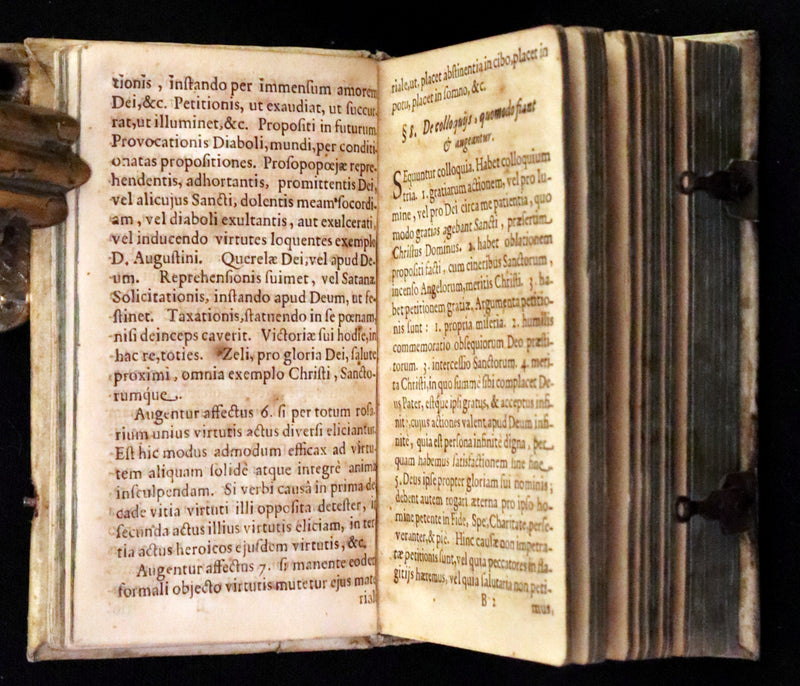 tionis, inſtando per immenſum amorem
Dei, &c. Petitionis, ut exaudiat, ut ſuccur-
rat, ut illuminet, &c. Propoſiti in futurum.
Provocationis Diaboli, mundi, per conditi-
onatas propoſitiones. Proſopopœjæ repre-
hendentis, adhortantis, promittentis Dei,
vel alicujus Sancti, dolentis meam ſocordi-
am, vel diaboli exultantis, aut exulcerati,
vel inducendo virtutes loquentes exemplo
D. Auguſtini. Querelæ Dei, vel apud De-
um. Reprehenſionis ſuimet, vel Satanæ
Solicitationis, inſtando apud Deum, ut fe-
ſtinet. Taxationis, ſtatuendo in ſe pœnam,
niſi deinceps caverit. Victoriæ ſui hodie, in
hac re, toties. Zeli, pro gloria Dei, ſalute
proximi, omnia exemplo Chriſti, Sancto-
rumque.
Augentur affectus 6. ſi per totum roſa-
rium unius virtutis actus diverſi eliciantur.
Eſt hic modus admodum efficax ad virtu-
tem aliquam ſolidè atque integrè animæ
inſculpendam. Si verbi causâ in prima de-
cade vitia virtuti illi oppoſita deteſter, in
ſecunda actus illius virtutis eliciam, in ter-
tia actus heroicos ejuſdem virtutis, &c.
Augentur affectus 7. ſi manente eodem
formali objecto virtutis mutetur ejus mate-
rial
riale, ut, placet abſtinentia in cibo, placet in
potu, placet in ſomno, &c.
§ 8. De colloquijs, quomodo fiant
& augeantur.
SEquuntur colloquia. Habet colloquium
tria. 1. gratiarum actionem, vel pro lu-
mine, vel pro Dei circa me patientia, quo
modo gratias agebant Sancti, præſertim
Chriſtus Dominus. 2. habet oblationem
propoſiti facti, cum cineribus Sanctorum,
incenſo Angelorum, meritis Chriſti. 3. ha-
bet petitionem gratiæ. Argumenta petitio-
nis ſunt: 1. propria miſeria. 2. humilis
commemoratio obſequiorum Deo præſti-
torum. 3. interceſſio Sanctorum. 4. meri-
ta Chriſti, in quo ſummè ſibi complacet De-
us Pater, eſtque ipſi gratus, & acceptus infi-
nitè; cujus actiones valent apud Deum infi-
nitè, quia eſt perſona infinitè digna, per
quam habemus ſatisfactionem ſine fine.
5. Deus ipſe propter gloriam ſui nominis;
debent autem rogari æterna pro ipſo ho-
mine petente in Fide, Spe, Charitate, perſe-
veranter, & piè. Hinc cauſæ non impetra-
tæ petitionis ſunt, vel quia peccatores in fla-
gitijs hæremus, vel quia ſalutaria non peti-
B 2
mus,